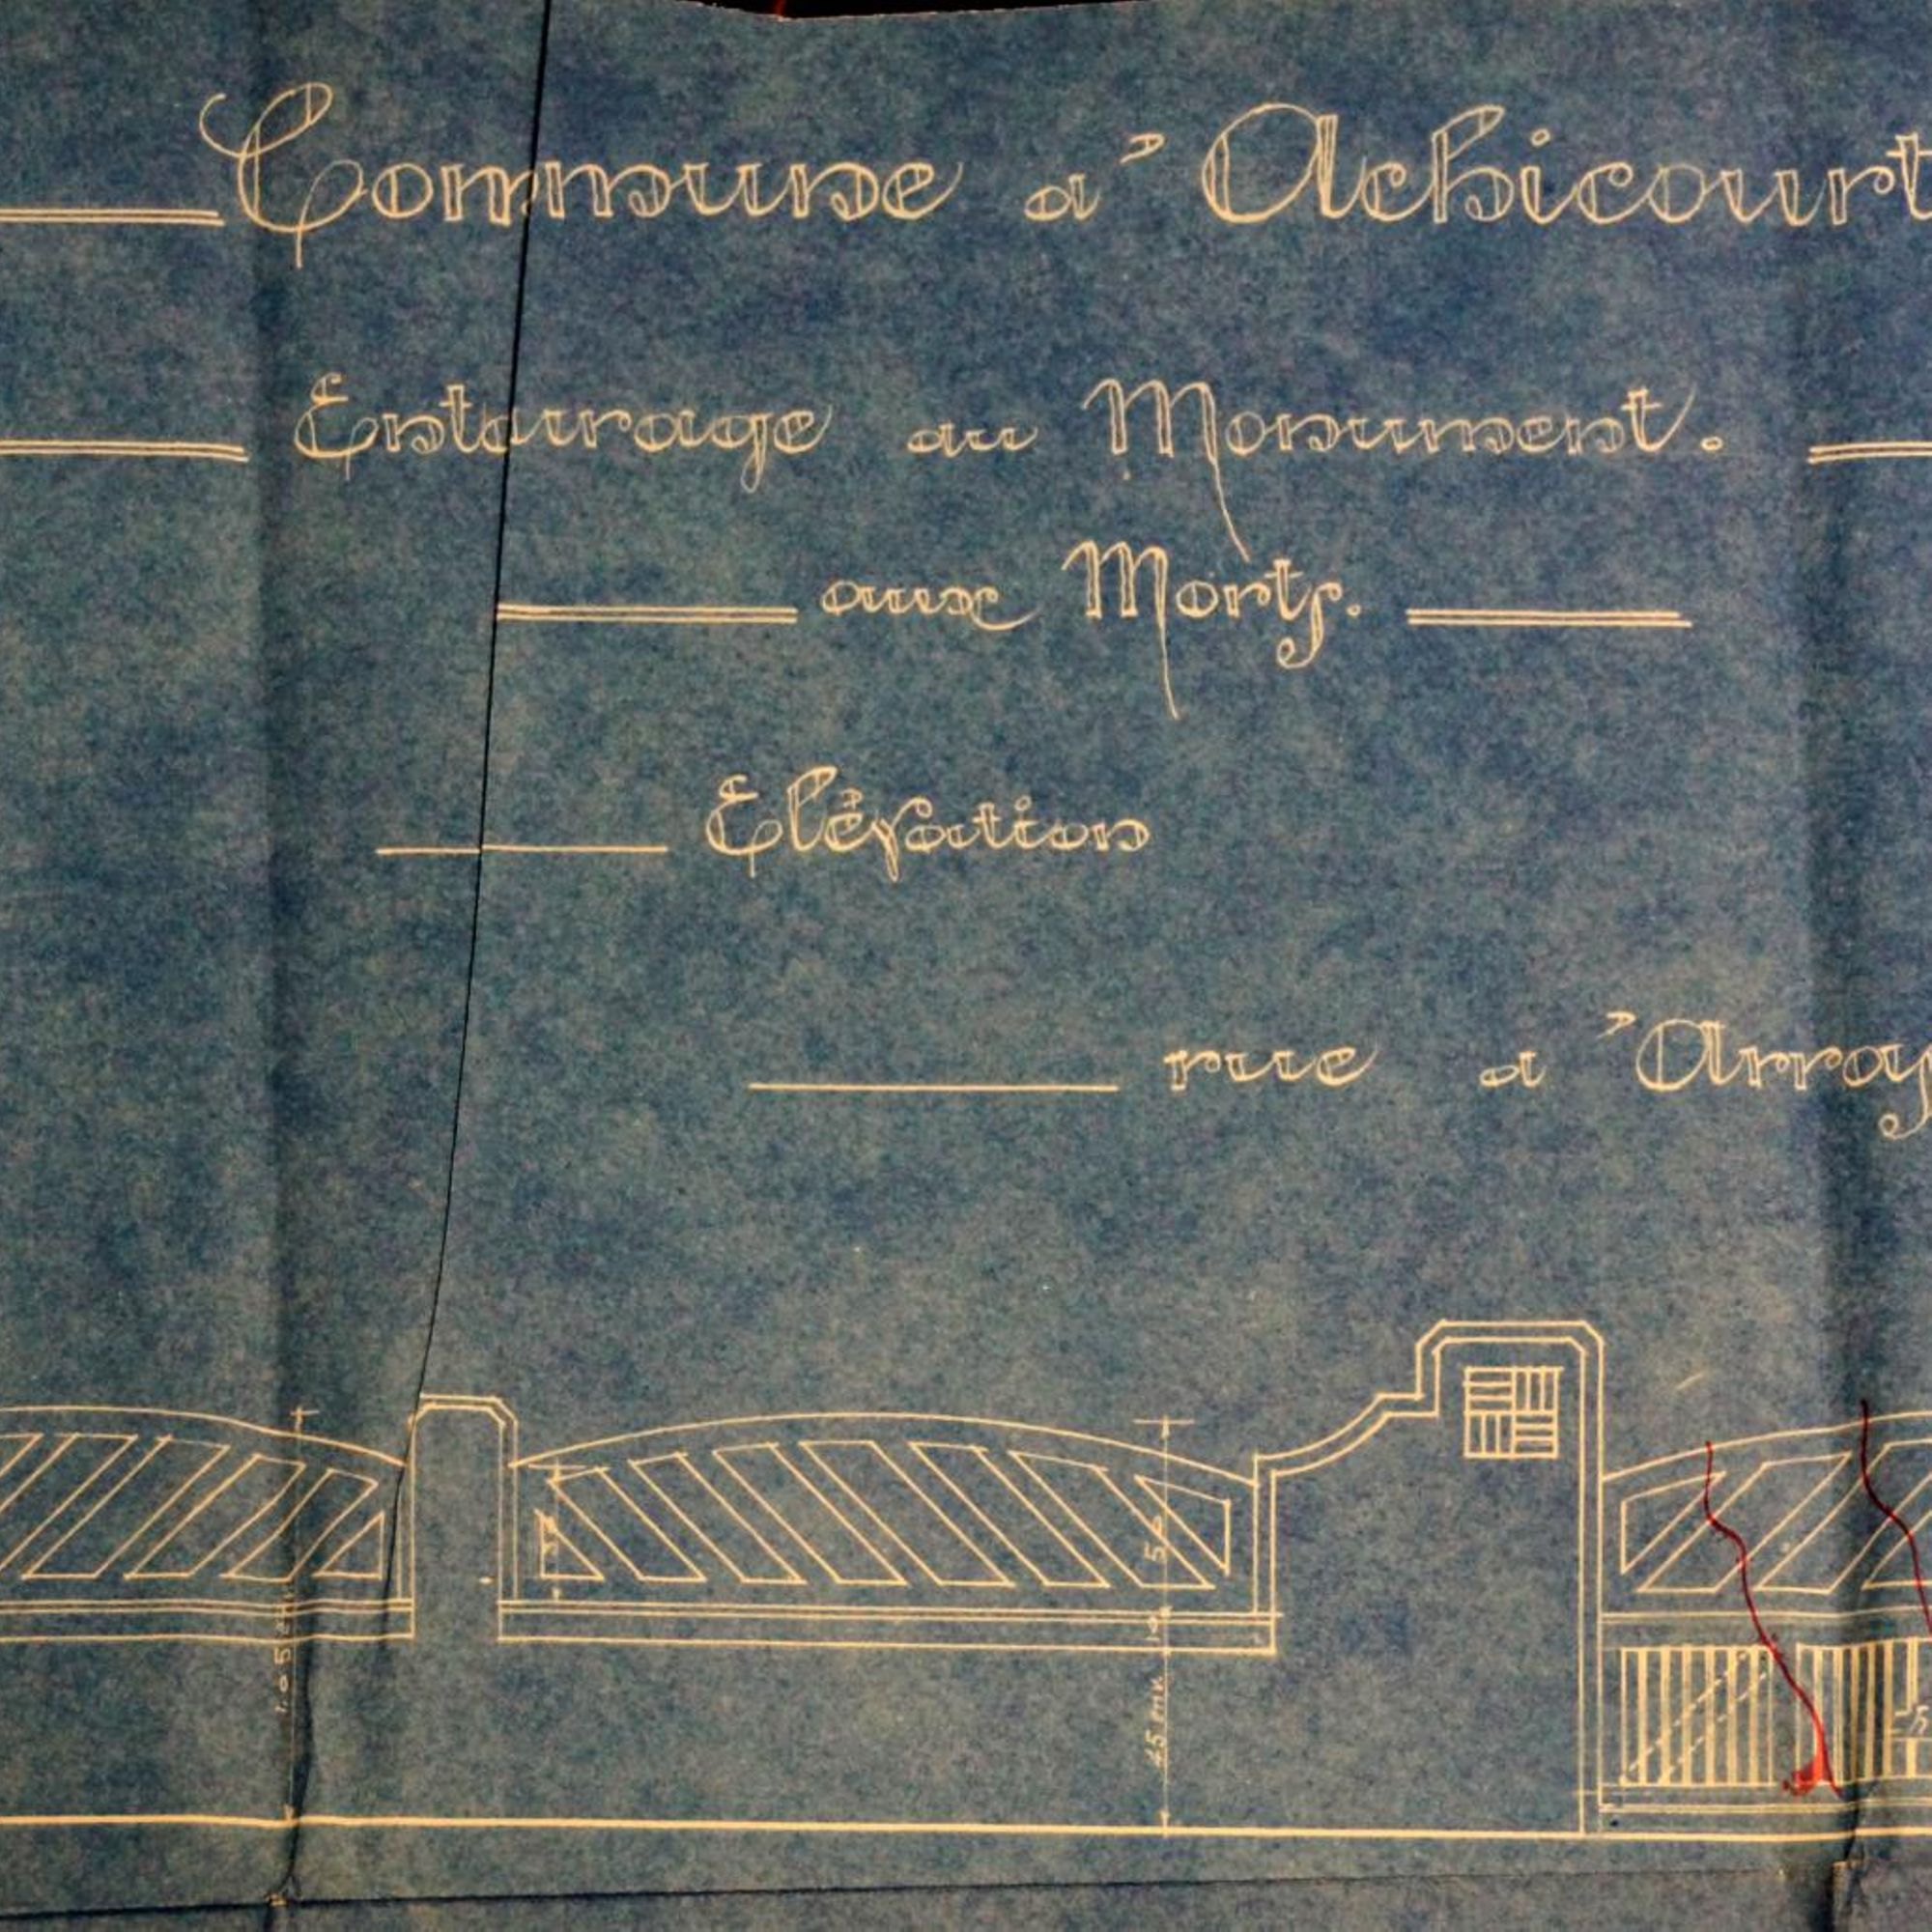 Commune d'Achicourt
Entourage au Monument.
aux Morts.
Elévation
rue d'Arras